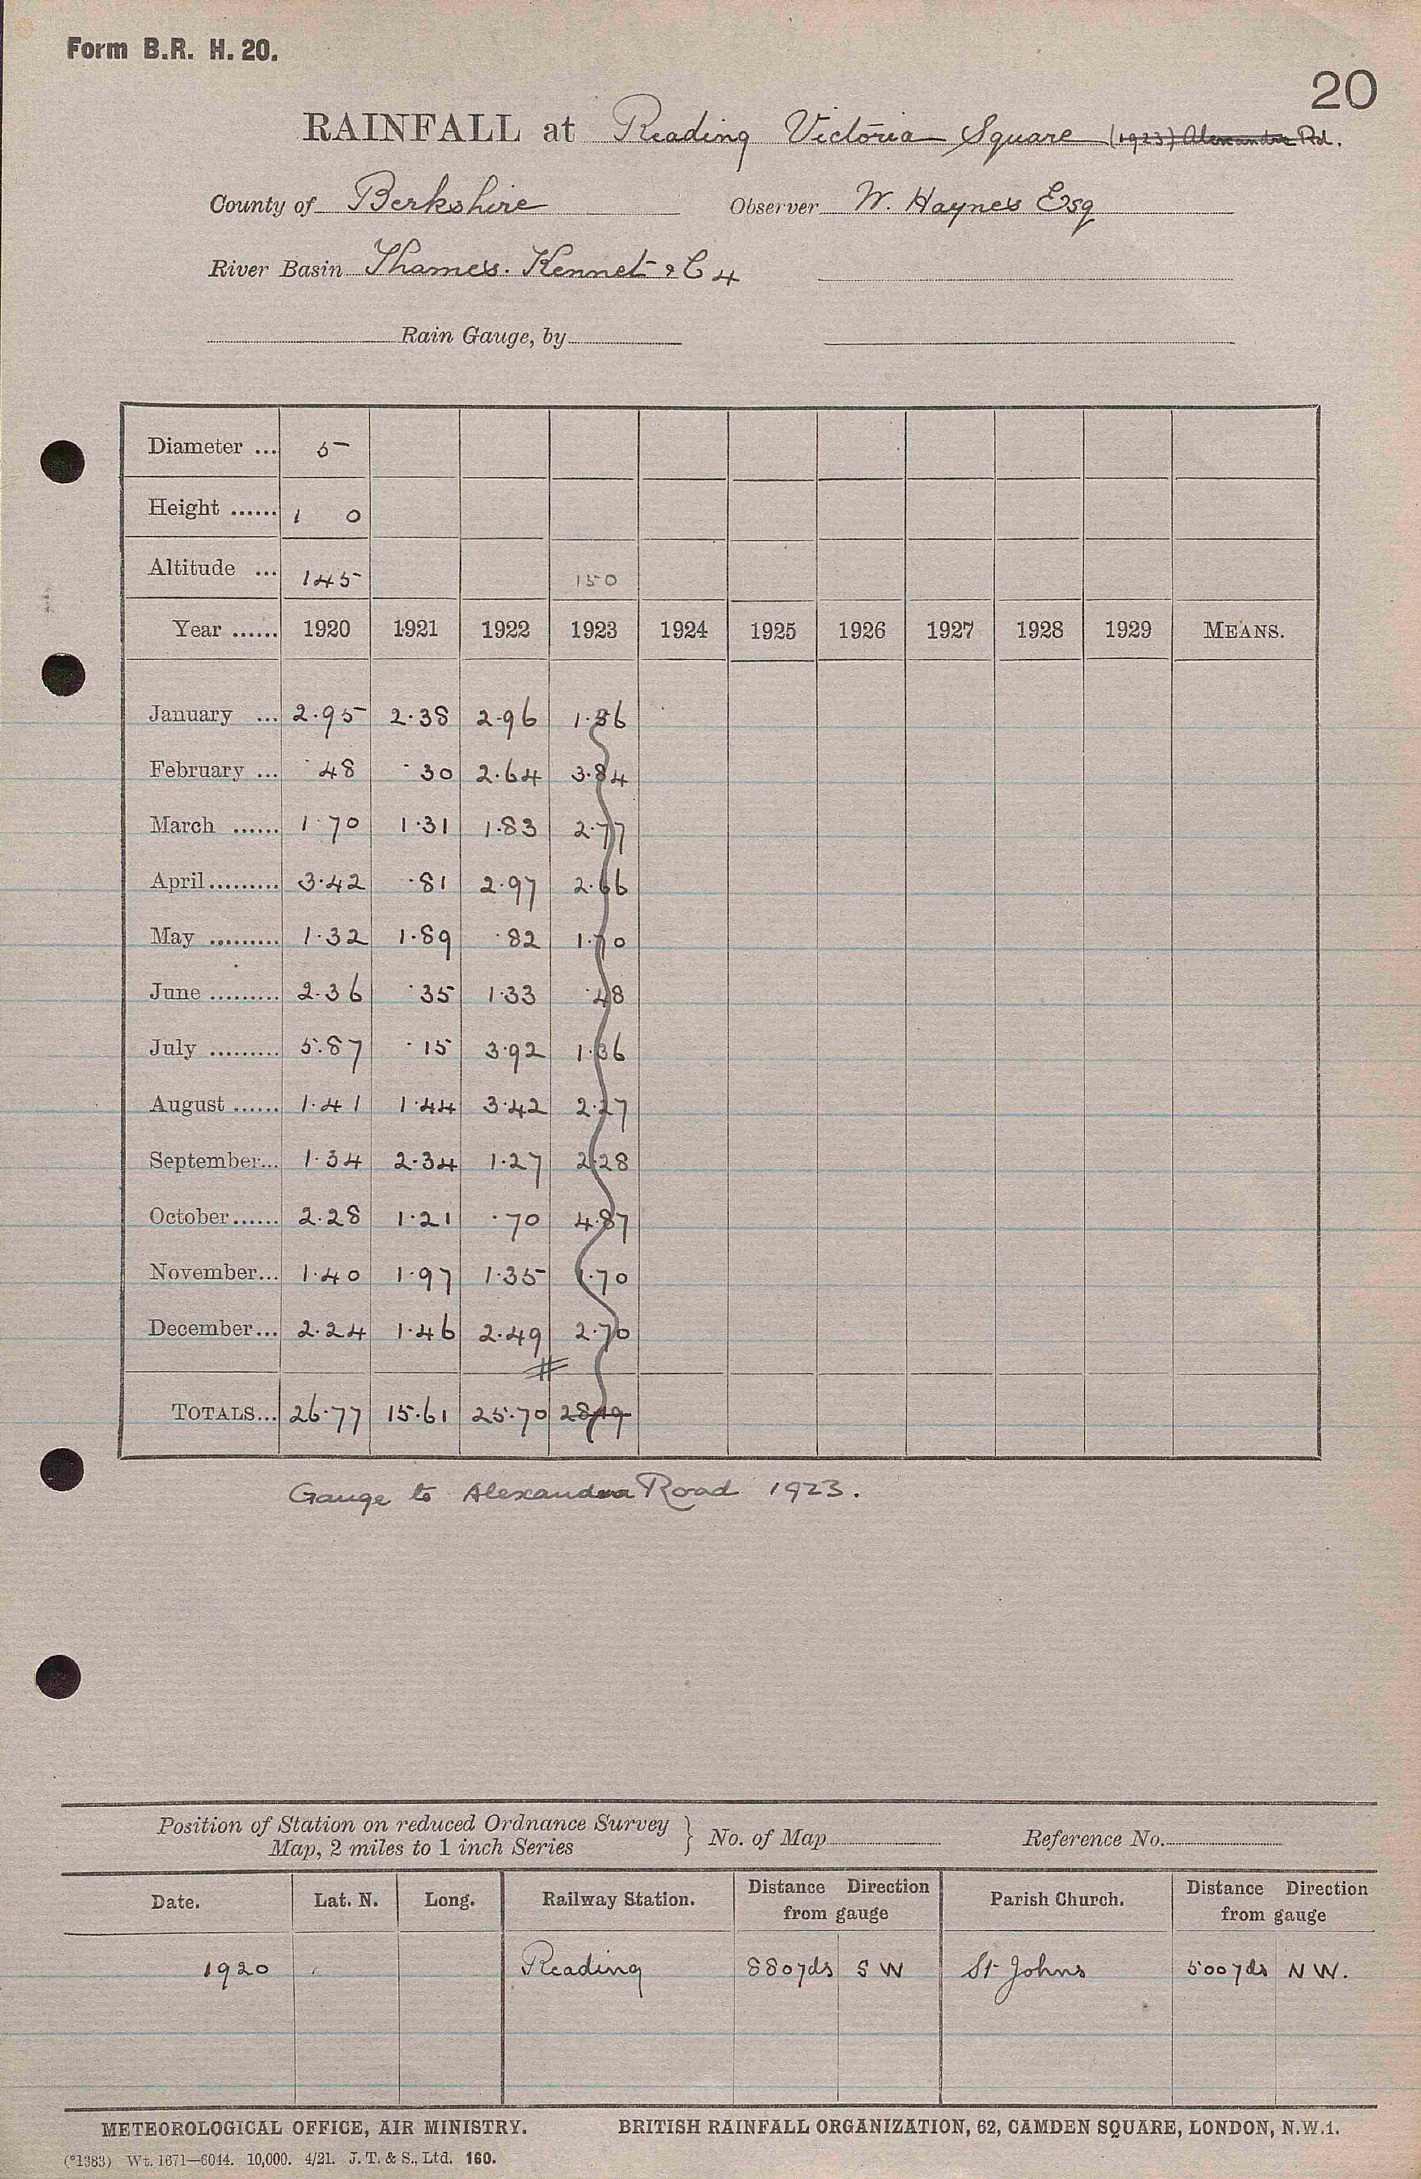 Form B.R. H. 20.
20
RAINFALL at Reading Victoria Square (1923) Alexandra Rd.
County of Berkshire Observer W. Haynes Esq
River Basin Thames. Kennet & C 4
Rain Gauge, by
Diameter ... 5
Height ...... 1 0
Altitude ... 145 150
Year ...... 1920 1921 1922 1923 1924 1925 1926 1927 1928 1929 MEANS.
January ... 2.95 2.38 2.96 1.36
February ... .48 .30 2.64 3.84
March ...... 1.70 1.31 1.83 2.77
April......... 3.42 .81 2.97 2.66
May ......... 1.32 1.89 .82 1.70
June ......... 2.36 .35 1.33 .48
July ......... 5.87 .15 3.92 1.36
August ...... 1.41 1.44 3.42 2.27
September... 1.34 2.34 1.27 2.28
October...... 2.28 1.21 .70 4.87
November... 1.40 1.97 1.35 1.70
December... 2.24 1.46 2.49 2.70
TOTALS... 26.77 15.61 25.70 28.19
Gauge to Alexandra Road 1923.
Position of Station on reduced Ordnance Survey
Map, 2 miles to 1 inch Series } No. of Map Reference No.
Date. Lat. N. Long. Railway Station. Distance Direction from gauge Parish Church. Distance Direction from gauge
1920 Reading 880yds SW St Johns 500yds NW.
METEOROLOGICAL OFFICE, AIR MINISTRY. BRITISH RAINFALL ORGANIZATION, 62, CAMDEN SQUARE, LONDON, N.W.1.
(*1383) Wt. 1671—6044. 10,000. 4/21. J. T. & S., Ltd. 160.